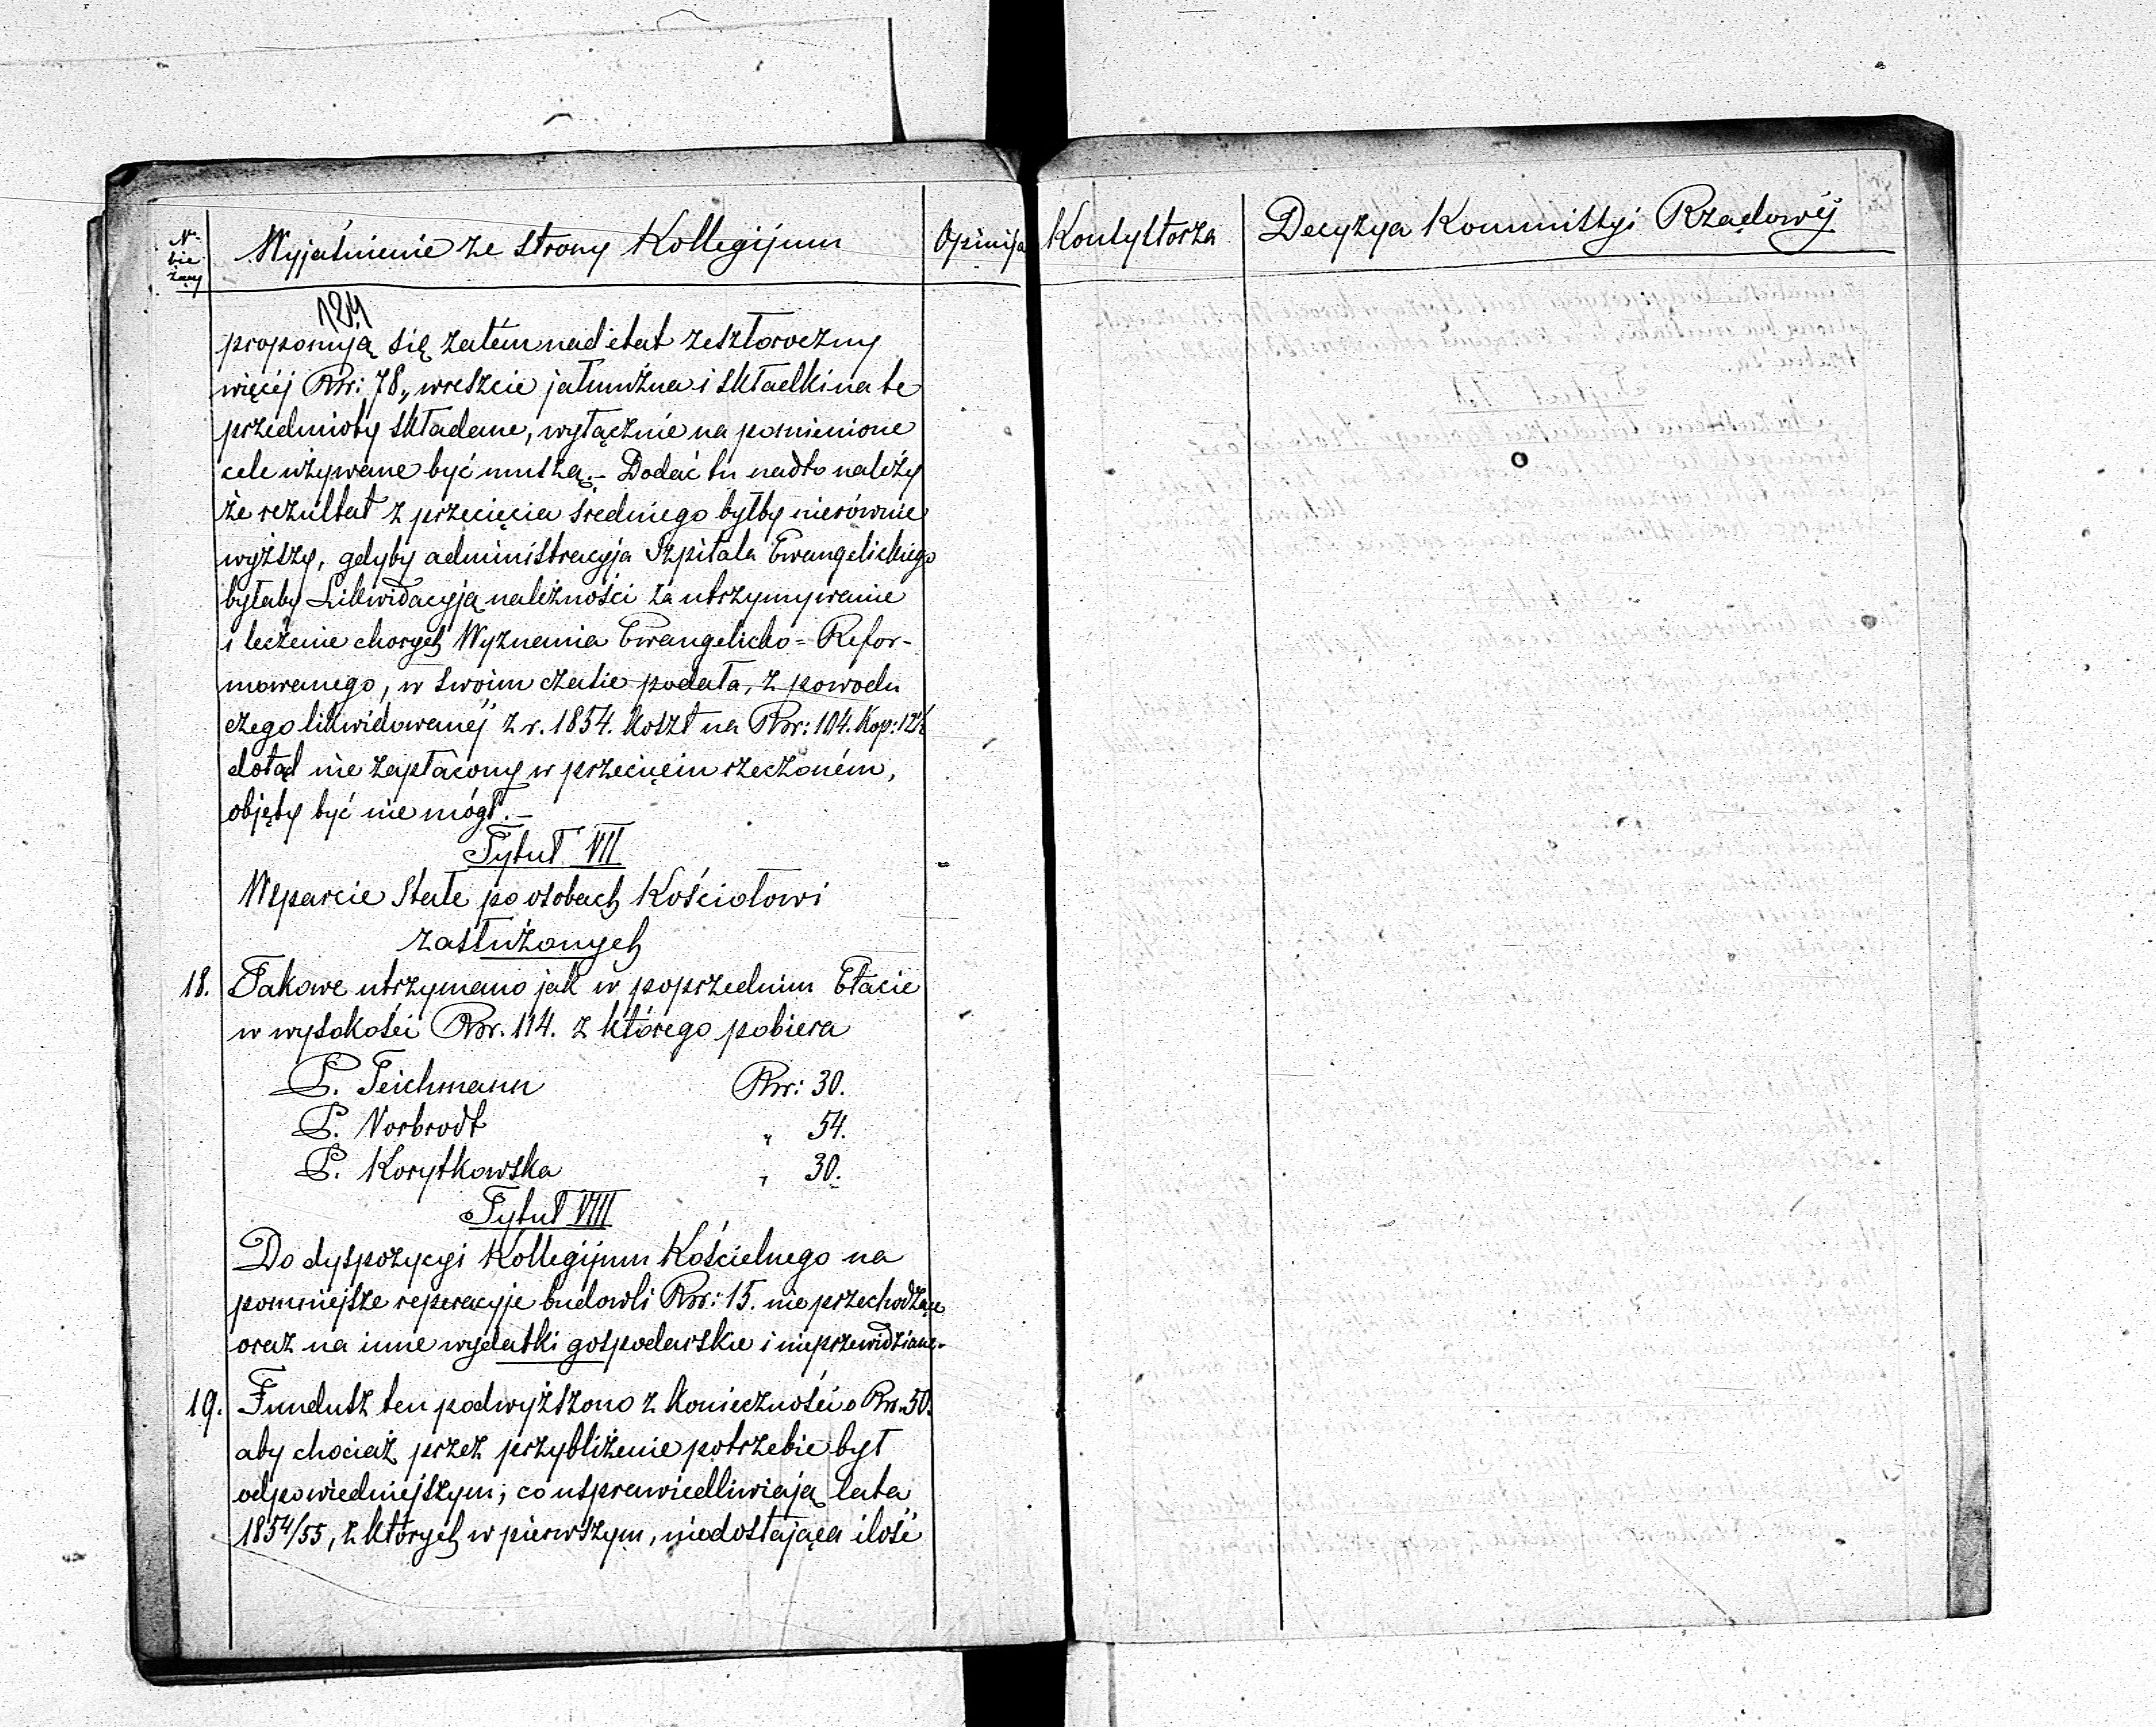 Nr bie żący
Wyjaśnienie ze strony Kollegijum
Opinija Konsystorza
Decyzya Kommissyi Rządowéj
184
proponują się zatém nad etat zeszłoroczny
więcéj Rsr: 78„ wreszcie jałmużna i składki na te
przedmioty składane, wyłącznie na pomienione
cele używane być muszą.– Dodać tu nadto należy
że rezultat z przecięcia średniego byłby nierównie
wyższy, gdyby administracyja Szpitala Ewangelickiego
byłaby Likwidacyją należności za utrzymywanie
i leczenie chorych Wyznania Ewangelicko=Refor-
mowanego, w swoim czasie podała, z powodu
czego likwidowanéj z r. 1854. koszt na Rsr: 104. Kop: 12½
dotąd nie zapłacony w przecięciu rzeczoném,
objęty być nie mógł.–
Tytuł VII
Wsparcie stałe po osobach Kościołowi
zasłużonych
18. Takowe utrzymano jak w poprzednim Etacie
w wysokości Rsr. 114. z którego pobiera
P. Teichmann Rsr: 30.
P. Vorbrodt „ 54.
P. Korytkowska „ 30.
Tytuł VIII
Do dyspozycyi Kollegijum Kościelnego na
pomniejsze reperacyje budowli Rsr: 15. nie przechodzące
oraz na inne wydatki gospodarskie i nieprzewidziane.
19. Fundusz ten podwyższono z konieczności o Rsr. 50.
aby chociaż przez przybliżenie potrzebie był
odpowiedniejszym; co usprawiedliwiają lata
1854/55, z których w pierwszym, niedostająca ilość